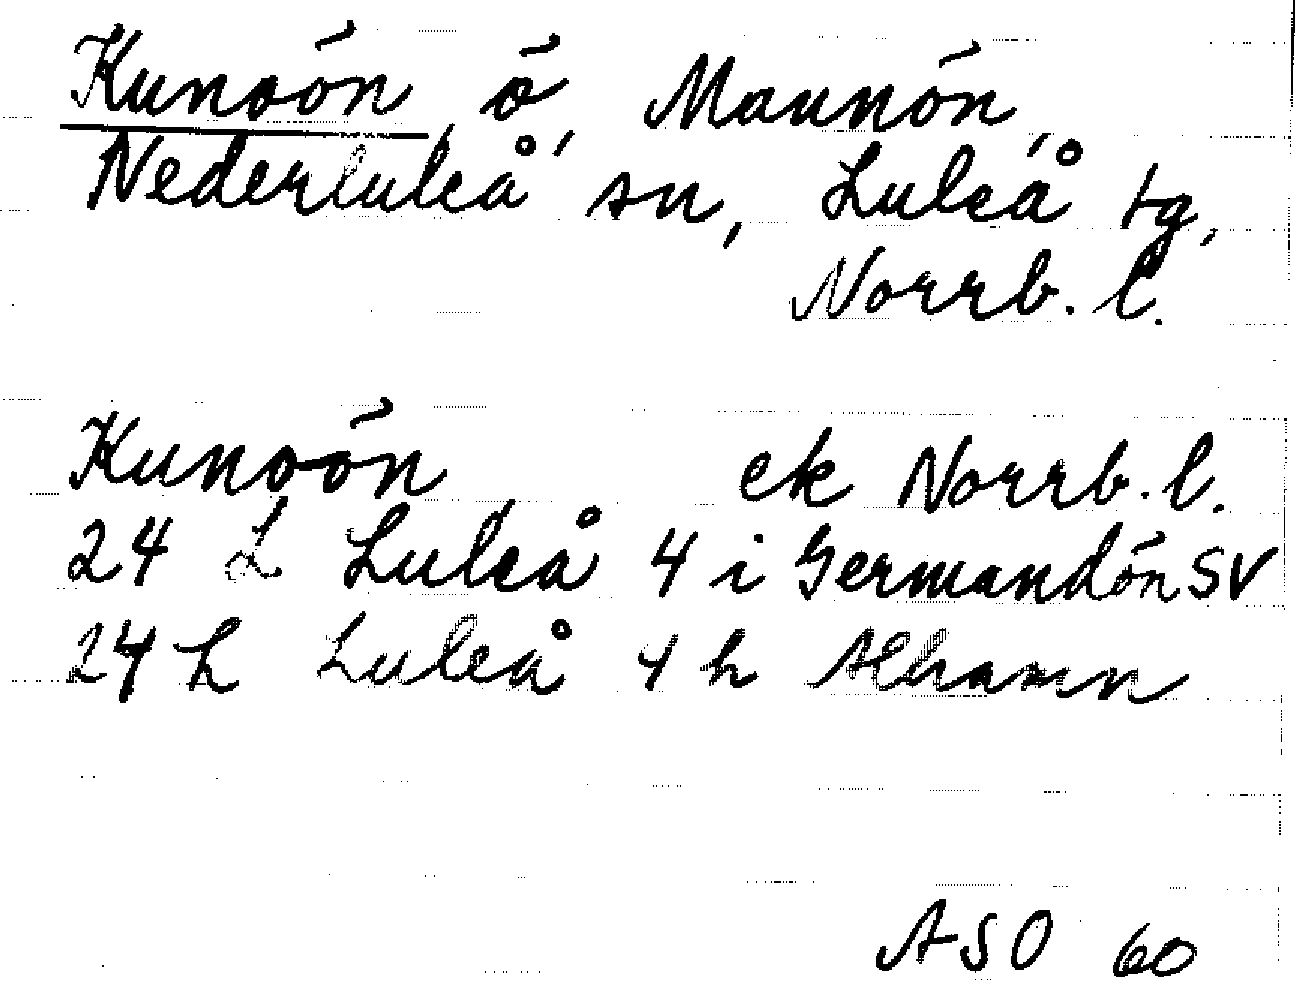 Kunoön, ö, Mannön,
Nederluleå sn, Luleå tg,
Norrb. l.
Kunoön ek Norrb. l.
24 L Luleå 4 i Germandön SV
24 L Luleå 4 h Alhamn
ASO 60